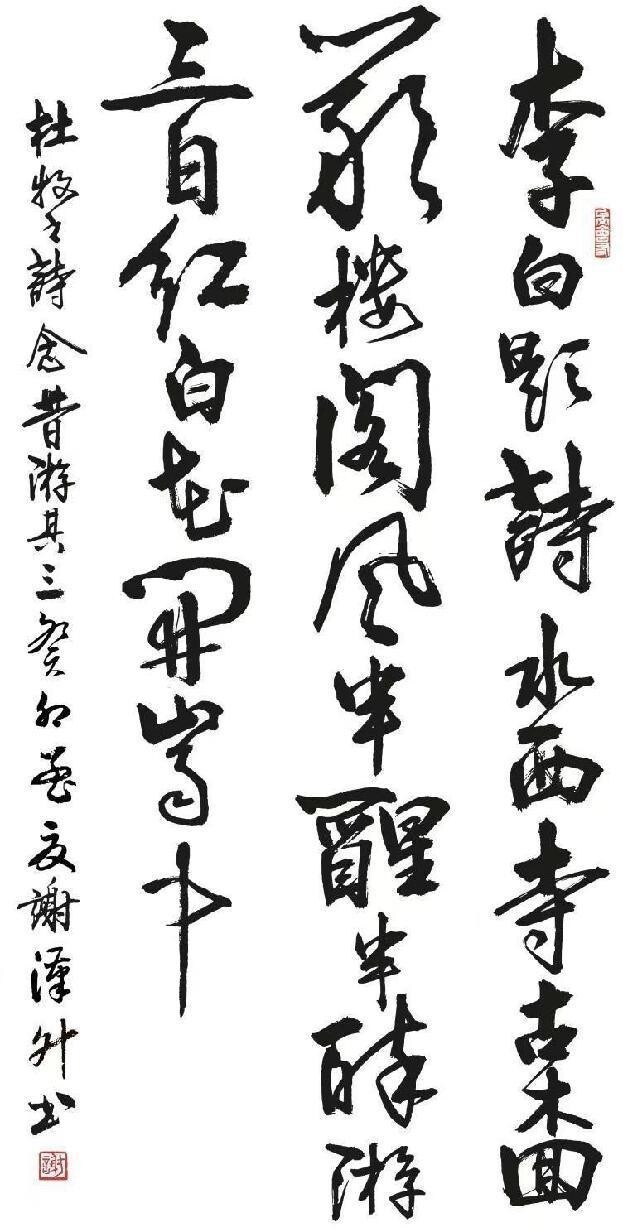 李白题詩水西寺古木回
巖楼阁风半醒半醉游
三日红白花开山雨中
杜牧之詩念昔游其三癸卯夏謝漢升书
謝